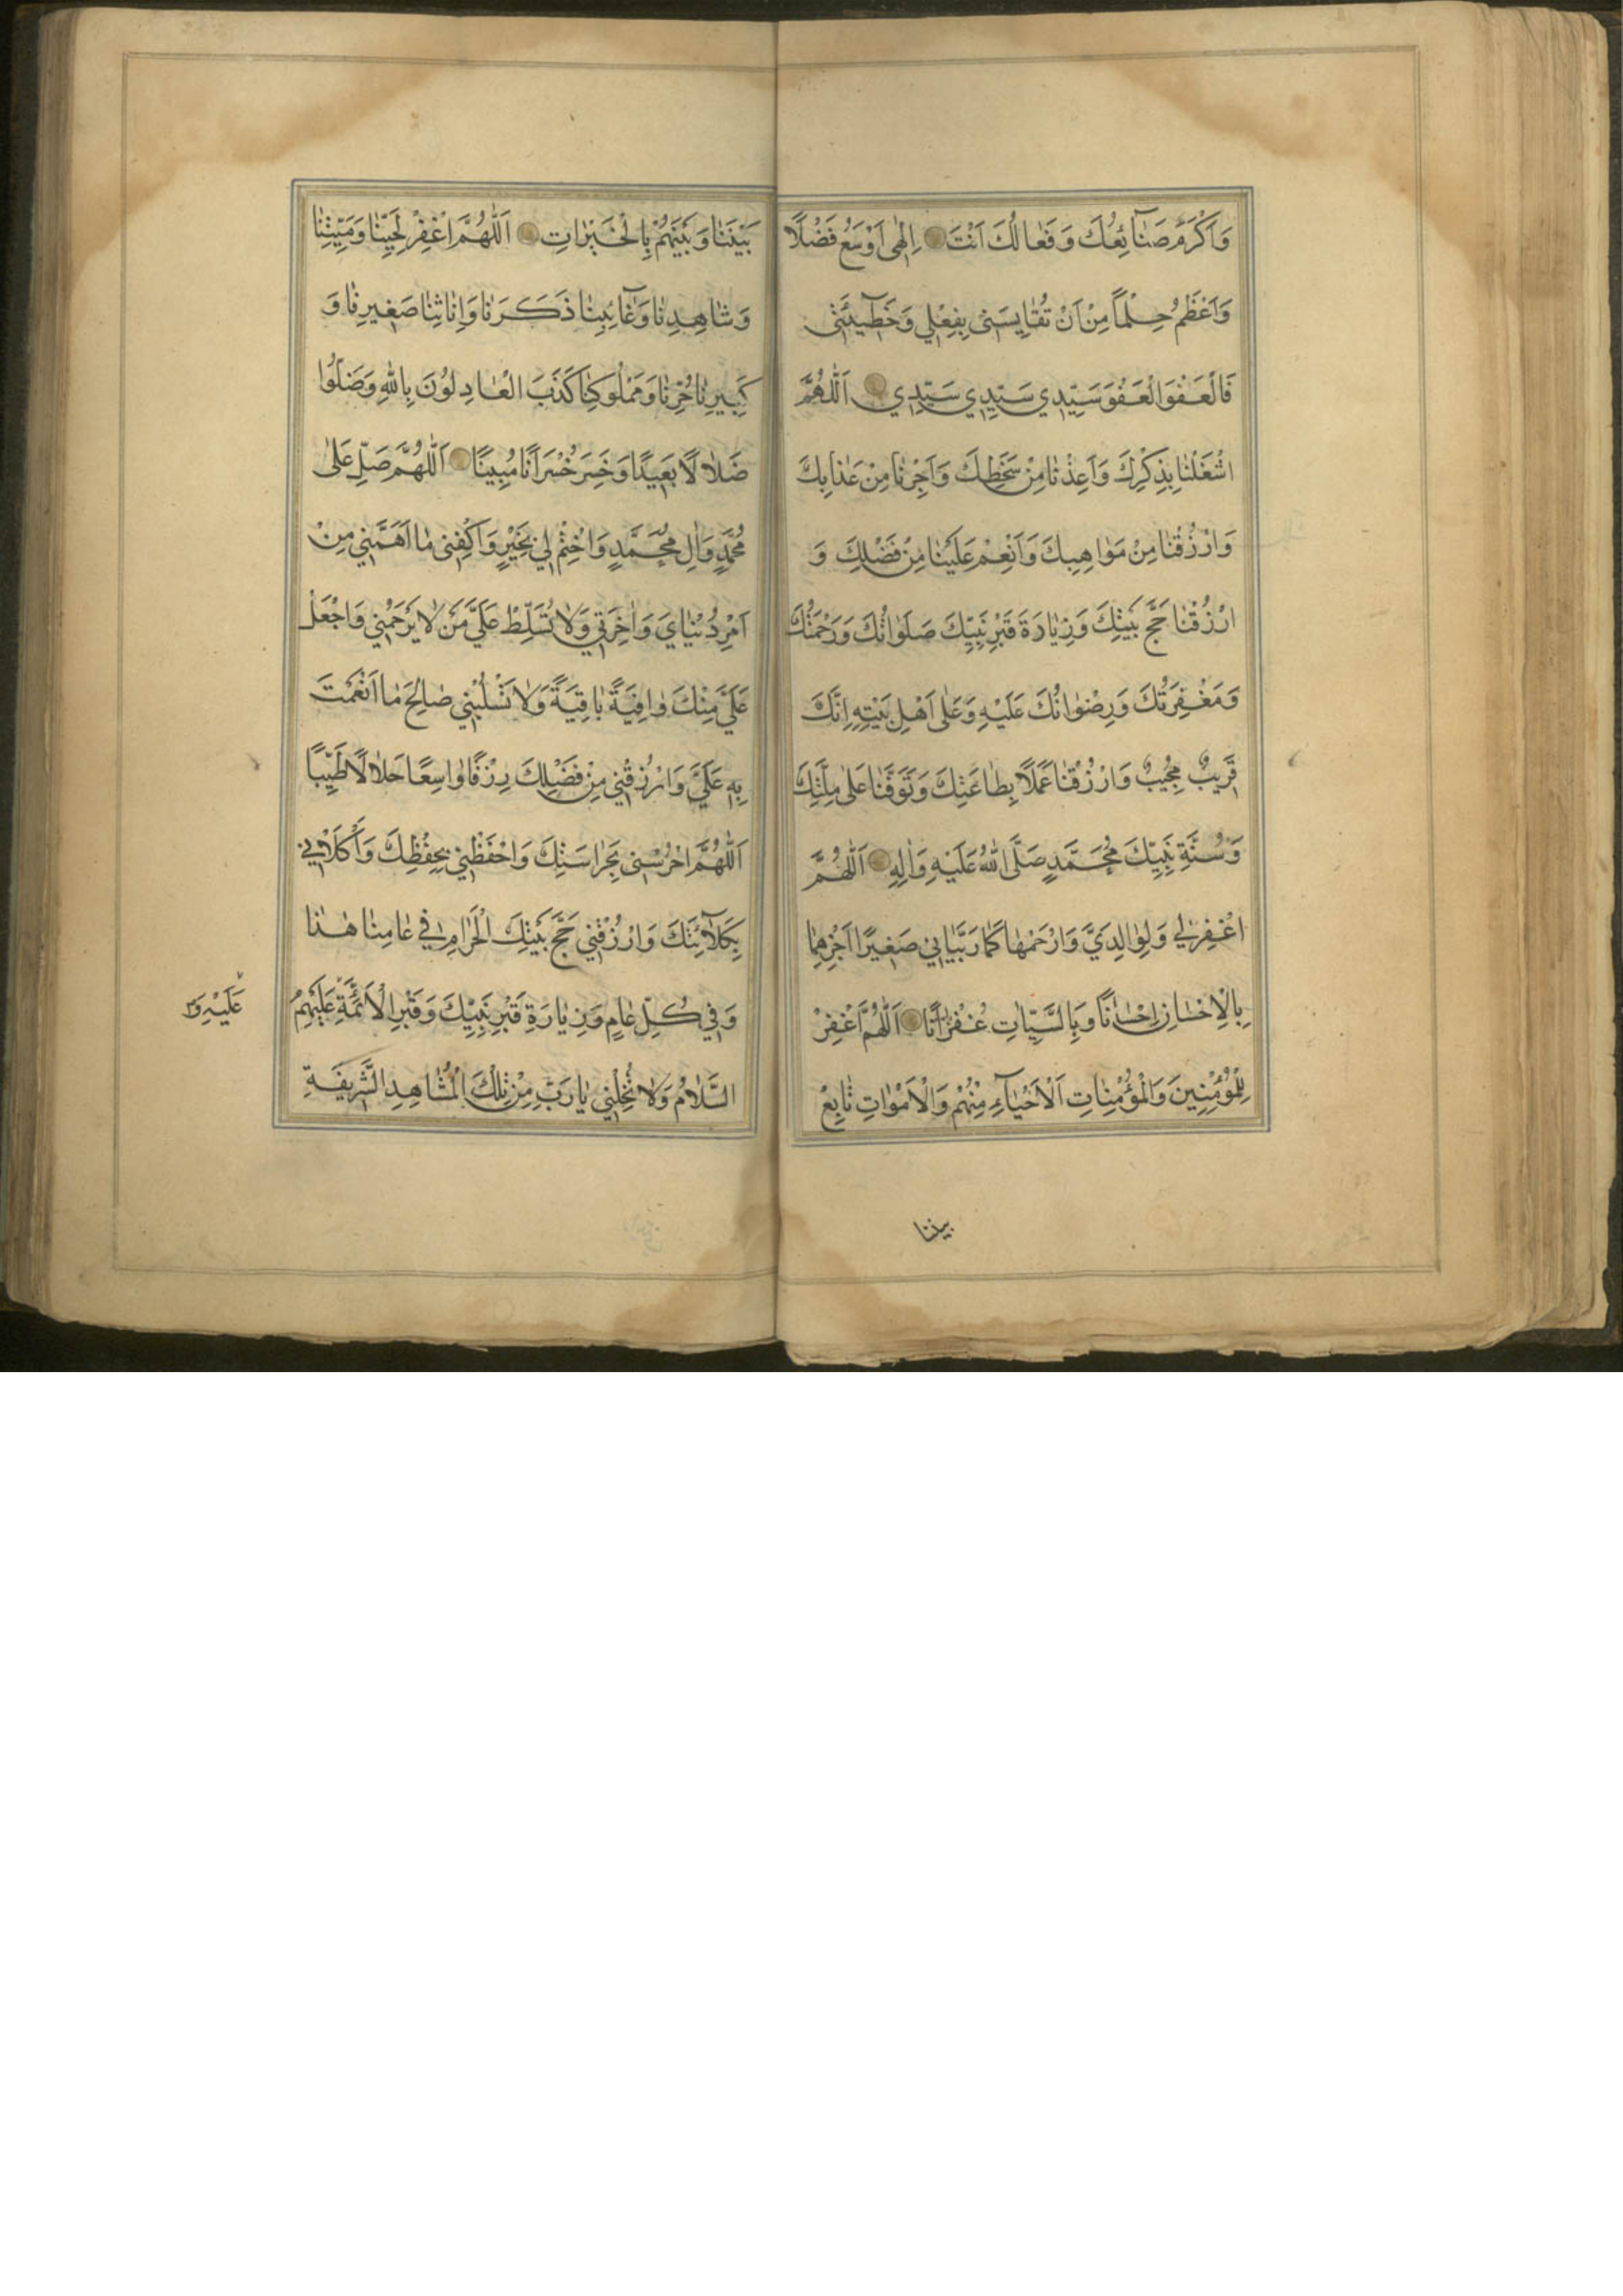 وَاَكْرَمَ صَنٰٓائِعُكَ وَفَعٰالُكَ اَنْتَ اِلٰهٰى اَوْسَعُ فَضْلًا
وَاَعْظَمُ حِلْمًا مِنْ اَنْ تُقٰايِسَنٰى بِفِعْلِي وَخَطٰٓيئَتٰى
فَالْعَفْوَ الْعَفْوَ سَيِّدِي سَيِّدِي سَيِّدِي اَللّٰهُمَّ
اشْغَلْنٰا بِذِكْرِكَ وَاَعِذْنٰا مِنْ سَخَطِكَ وَاَجِرْنٰا مِنْ عَذٰابِكَ
وَارْزُقْنٰا مِنْ مَوٰاهِبِكَ وَاَنْعِمْ عَلَيْنٰا مِنْ فَضْلِكَ وَ
ارْزُقْنٰا حَجَّ بَيْتِكَ وَزِيٰارَةَ قَبْرِ نَبِيِّكَ صَلَوٰاتُكَ وَرَحْمَتُكَ
وَمَغْفِرَتُكَ وَرِضْوٰانُكَ عَلَيْهِ وَعَلٰى اَهْلِ بَيْتِهِ اِنَّكَ
قَرِيبٌ مُجِيبٌ وَارْزُقْنٰا عَمَلًا بِطٰاعَتِكَ وَتَوَفَّنٰا عَلٰى مِلَّتِكَ
وَسُنَّةِ نَبِيِّكَ مُحَمَّدٍ صَلَّى اللهُ عَلَيْهِ وَاٰلِهِ اَللّٰهُمَّ
اغْفِرْ لٰي وَلِوٰالِدَيَّ وَارْحَمْهُمٰا كَمٰا رَبَّيٰانٰي صَغِيرًا اَجْزِهِمٰا
بِالْاِحْسٰانِ اِحْسٰانًا وَبِالسَّيِّاٰتِ غُفْرٰانًا اَللّٰهُمَّ اغْفِرْ
لِلْمُؤْمِنِينَ وَالْمُؤْمِنٰاتِ اَلْاَحْيٰٓاءِ مِنْهُمْ وَالْاَمْوٰاتِ تٰابِعْ
بيننا
بَيْنَنٰا وَبَيْنَهُمْ بِالْخَيْرٰاتِ اَللّٰهُمَّ اغْفِرْ لِحَيِّنٰا وَمَيِّتِنٰا
وَشٰاهِدِنٰا وَغٰٓائِبِنٰا ذَكَرِنٰا وَاِنٰاثِنٰا صَغِيرِنٰا وَ
كَبِيرِنٰا حُرِّنٰا وَمَمْلُوكِنٰا كَذَبَ الْعٰادِلُونَ بِاللهِ وَضَلُّوا
ضَلٰالًا بَعِيدًا وَخَسِرَ خُسْرَانًا مُبِينًا اَللّٰهُمَّ صَلِّ عَلٰى
مُحَمَّدٍ وَاٰلِ مُحَمَّدٍ وَاخْتِمْ لٰي بِخَيْرٍ وَاكْفِنٰى مٰا اَهَمَّنٰي مِنْ
اَمْرِ دُنْيٰايَ وَاٰخِرَتٰي وَلٰا تُسَلِّطْ عَلَيَّ مَنْ لٰا يَرْحَمُنٰي وَاجْعَلْ
عَلَيَّ مِنْكَ وٰاقِيَةً بٰاقِيَةً وَلٰا تَسْلُبْنٰي صٰالِحَ مٰا اَنْعَمْتَ
بِهِ عَلَيَّ وَارْزُقْنٰي مِنْ فَضْلِكَ رِزْقًا وٰاسِعًا حَلٰالًا طَيِّبًا
اَللّٰهُمَّ احْرُسْنٰى بِحِرٰاسَتِكَ وَاحْفَظْنٰي بِحِفْظِكَ وَاكْلَأْنٰي
بِكَلٰٓائَتِكَ وَارْزُقْنٰي حَجَّ بَيْتِكَ الْحَرٰامِ فٰي عٰامِنٰا هٰذٰا
وَفٰي كُلِّ عٰامٍ وَزِيٰارَةِ قَبْرِ نَبِيِّكَ وَقَبْرِ الْاَئِمَّةِ عَلَيْهِمُ
عَلَيْهِ وَ
السَّلٰامُ وَلٰا تُخْلِنٰي يٰا رَبِّ مِنْ تِلْكَ الْمَشٰاهِدِ الشَّرِيفَةِ